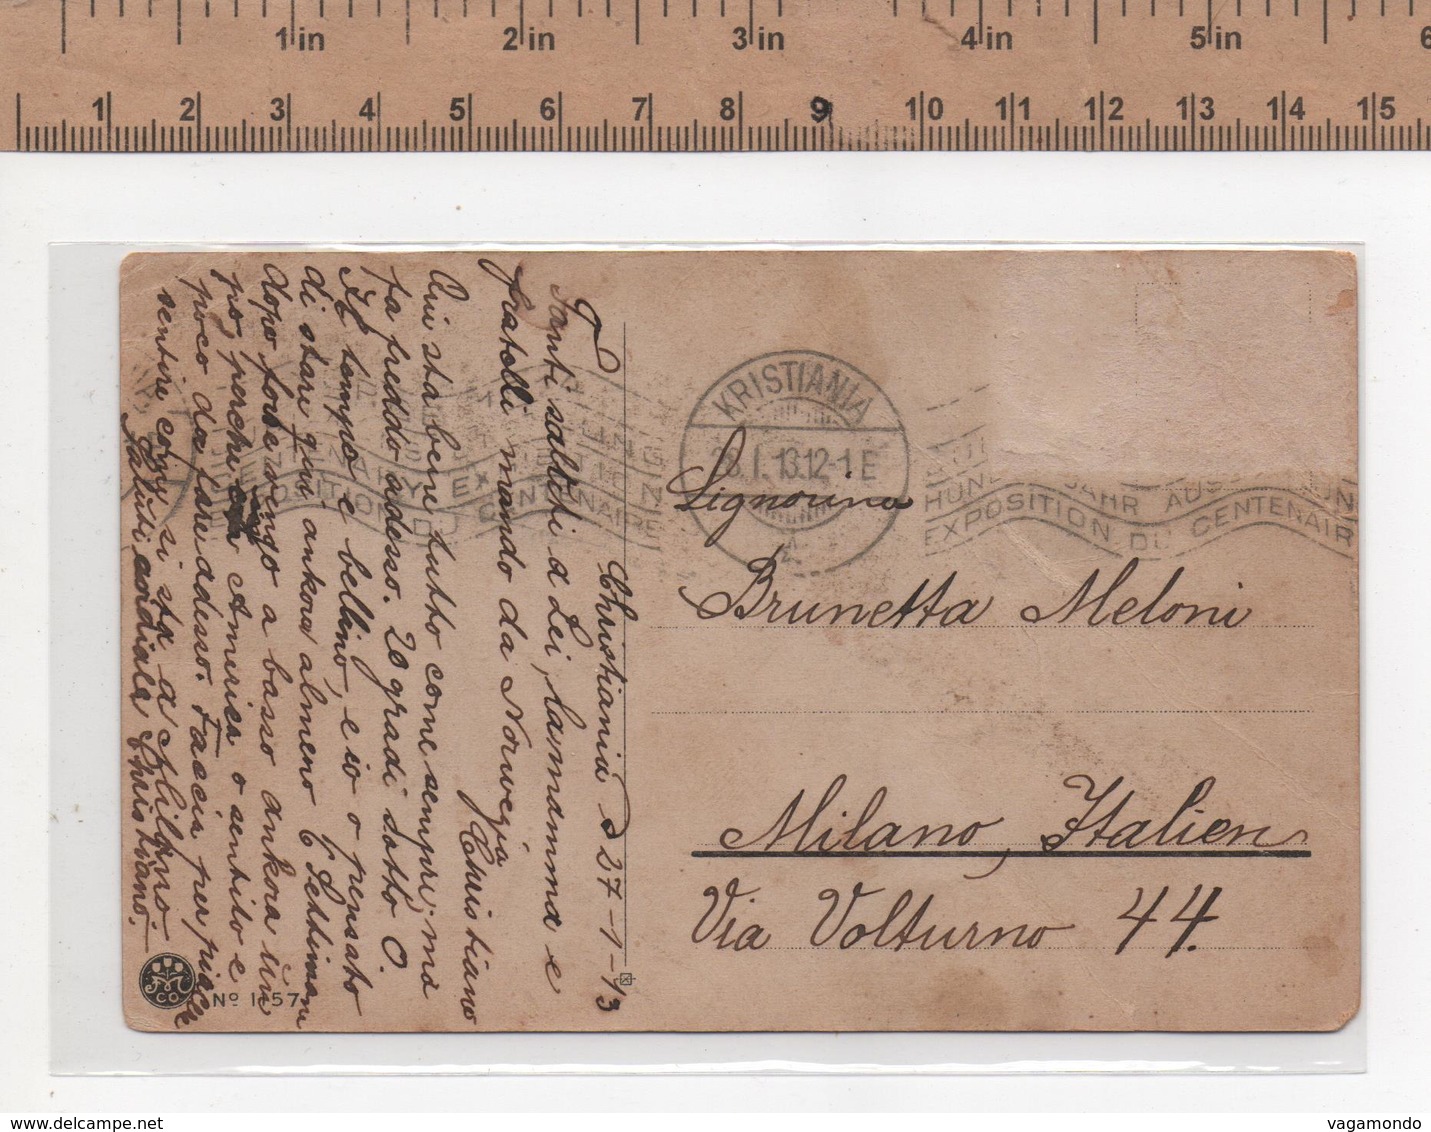 1 in 2 in 3 in 4 in 5 in 6
1 2 3 4 5 6 7 8 9 10 11 12 13 14 15
Christiania d 27-1-13
Tanti saluti a Lei, la mamma e
fratelli mando da Norvegia
Christiano
Qui sta bene tutto come sempre, ma
fa freddo adesso. 20 gradi sotto 0.
Il tempo e bellino, e io o pensato
di stare qui ankora almeno 6 Settimani
dopo forse vengo a basso ankora un
po, perche in America o sentito e
poco da fare adesso. Faccia per piace
sentire come si sta a Milano
Saluti cordiala Christiano.
Nº 1157
CO
KRISTIANIA
28.I.13.12-1 E
HUND JAHR AUSS
EXPOSITION DU CENTENAIR
CENTENARY EX
EXPOSITION DU CENTENAIRE
Signorina
Brunetta Meloni
Milano, Italien
Via Volturno 44.
delcampe.net
vagamondo